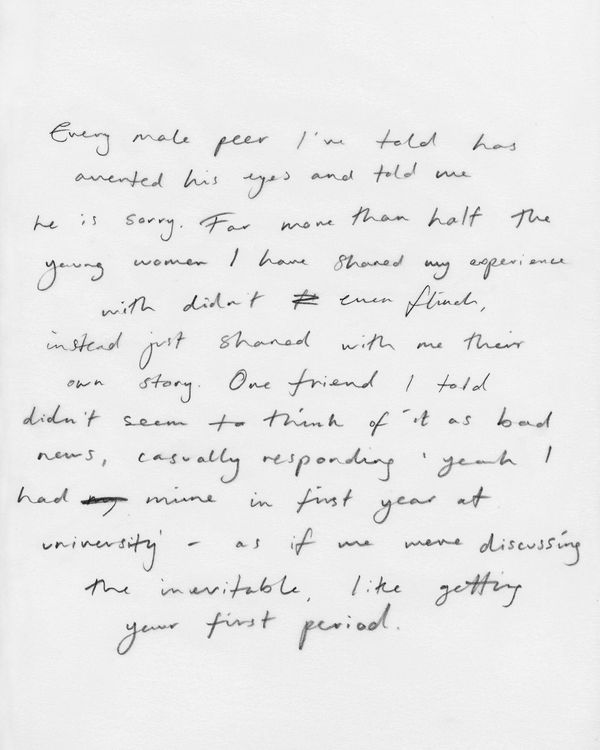 Every male peer I've told has
averted his eyes and told me
he is sorry. Far more than half the
young women I have shared my experience
with didn't even flinch,
instead just shared with me their
own story. One friend I told
didn't seem to think of it as bad
news, casually responding 'yeah I
had mine in first year at
university' - as if we were discussing
the inevitable, like getting
your first period.